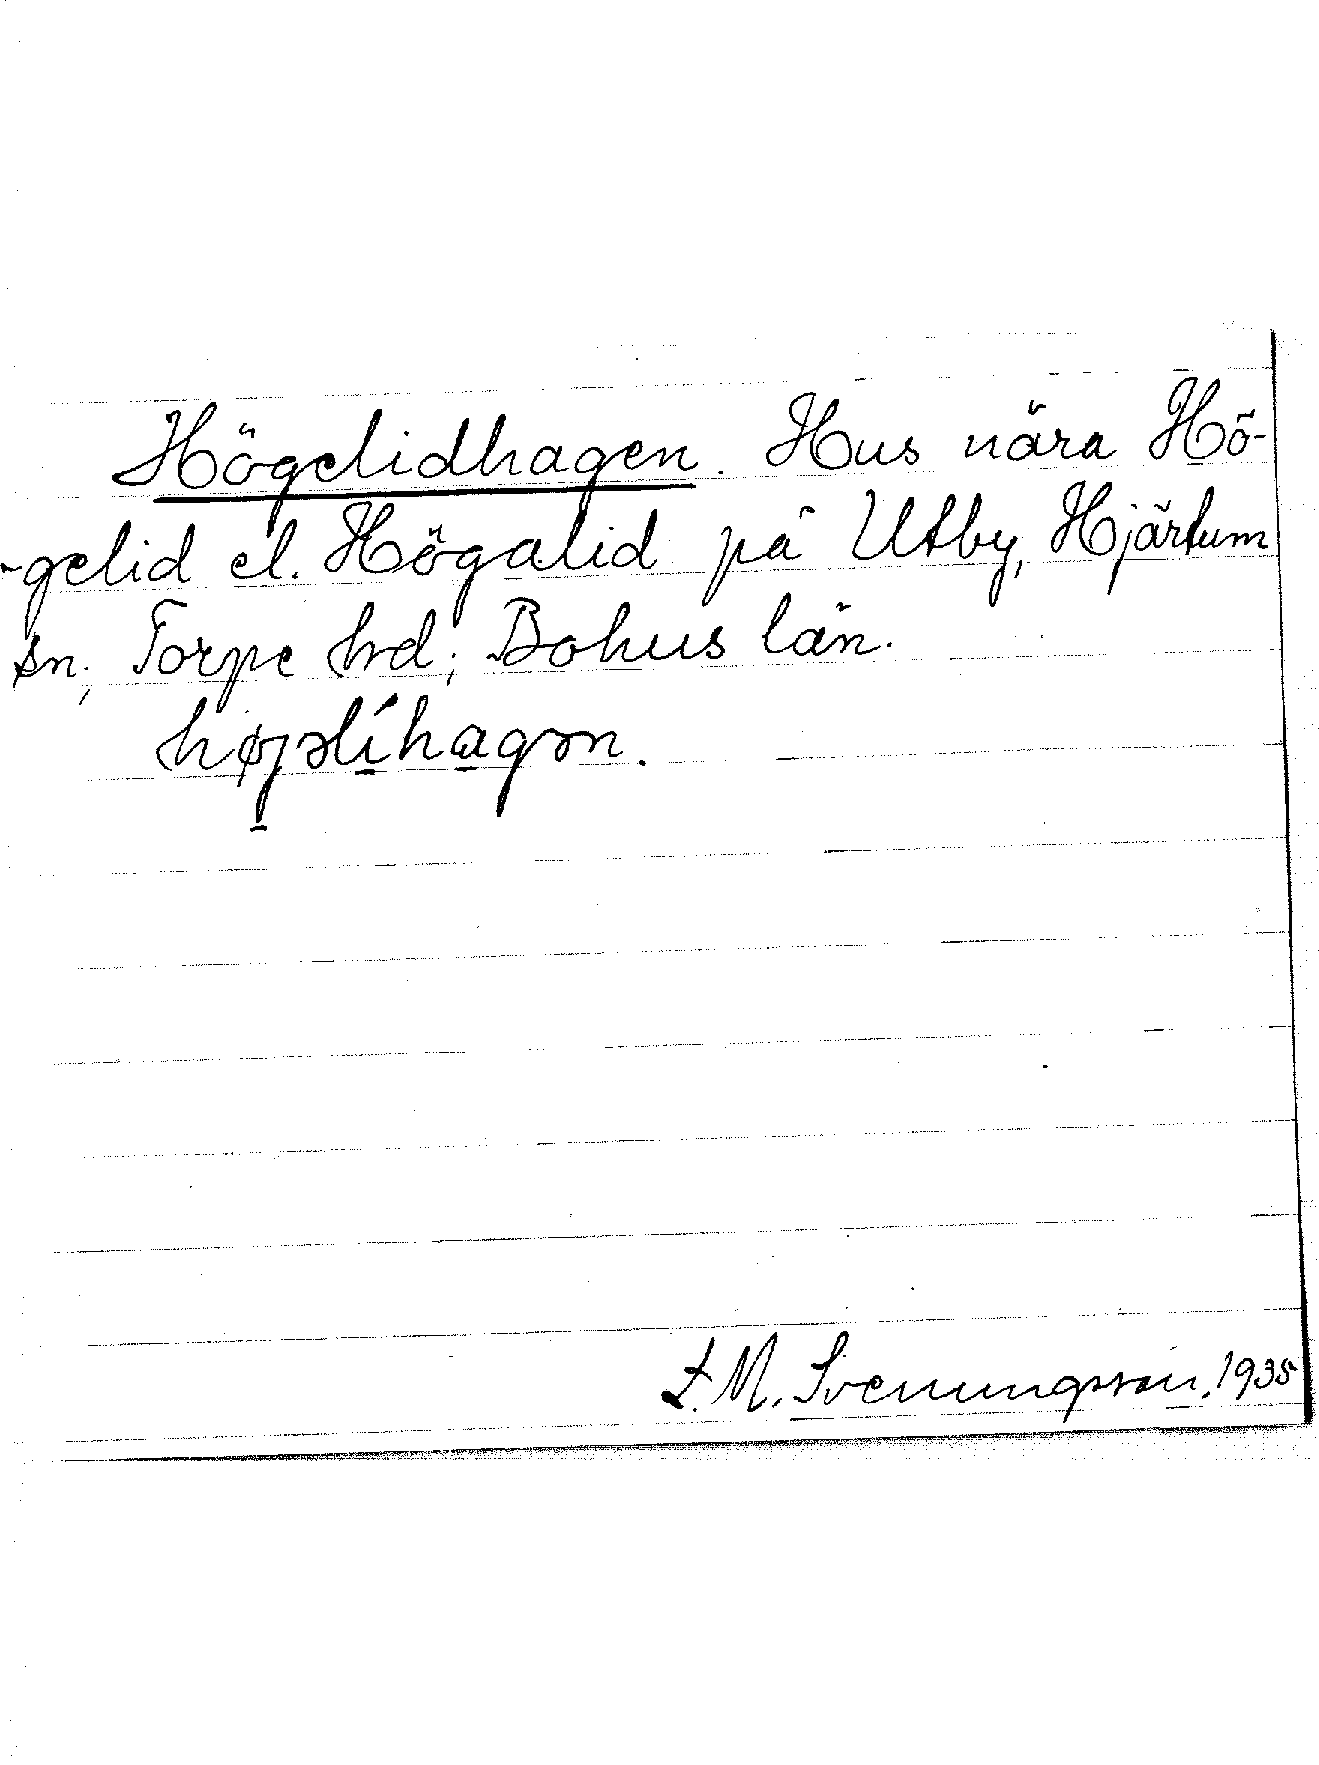 Högelidhagen. Hus nära Hö-
-gelid el. Högalid på Utby, Hjärtum
sn; Torpe hrd; Bohus län.
højəlíhagən.
L. M. Svenungsson, 1935